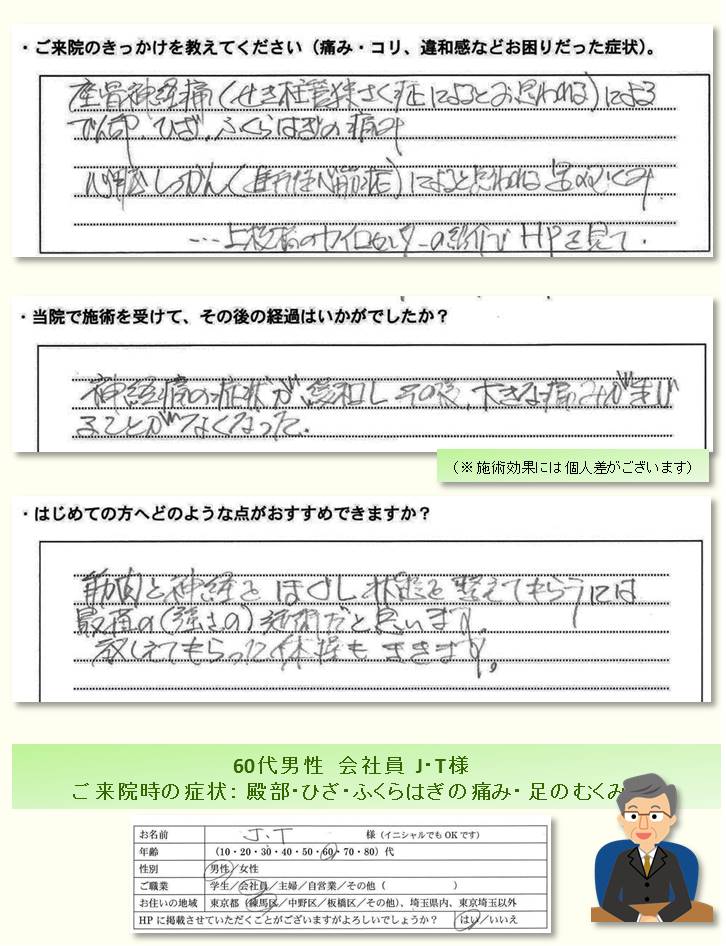 ・ご来院のきっかけを教えてください（痛み・コリ、違和感などお困りだった症状）。
座骨神経痛（せき柱管狭さく症によるとお思われる）による
でん部、ひざ、ふくらはぎの痛み
心臓しっかん（ 心筋症）によると思われる足のむくみ
…上板橋のカイロセンターの紹介で HPを見て.
・当院で施術を受けて、その後の経過はいかがでしたか？
神経痛の症状が緩和しその後、大きな痛みが生じ
ることがなくなった.
（※施術効果には個人差がございます）
・はじめての方へどのような点がおすすめできますか？
筋肉と神経をほぐし状態を整えてもらうには
最適の（強さの）施術だと思います。
教えてもらった体操もききます。
60代男性 会社員 J・T様
ご来院時の症状：殿部・ひざ・ふくらはぎの痛み・足のむくみ
お名前 J.T 様（イニシャルでもOKです）
年齢 （10・20・30・40・50・60・70・80）代
性別 男性／女性
ご職業 学生／会社員／主婦／自営業／その他（ ）
お住いの地域 東京都（練馬区／中野区／板橋区／その他）、埼玉県内、東京埼玉以外
HPに掲載させていただくことがございますがよろしいでしょうか？ はい／いいえ